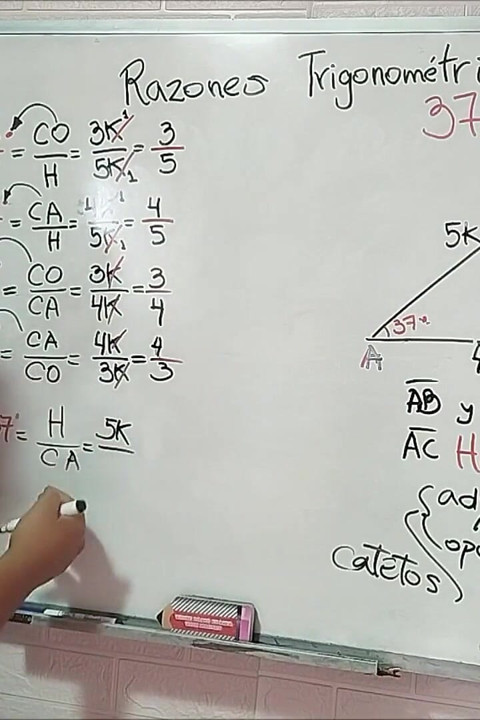 Razones Trigonométri
37
= CO/H = 3K/5K = 3/5
= CA/H = 4K/5K = 4/5
= CO/CA = 3K/4K = 3/4
= CA/CO = 4K/3K = 4/3
7° = H/CA = 5K
5K
37°
A
4
AB y
AC H
ad
opo
Catétos